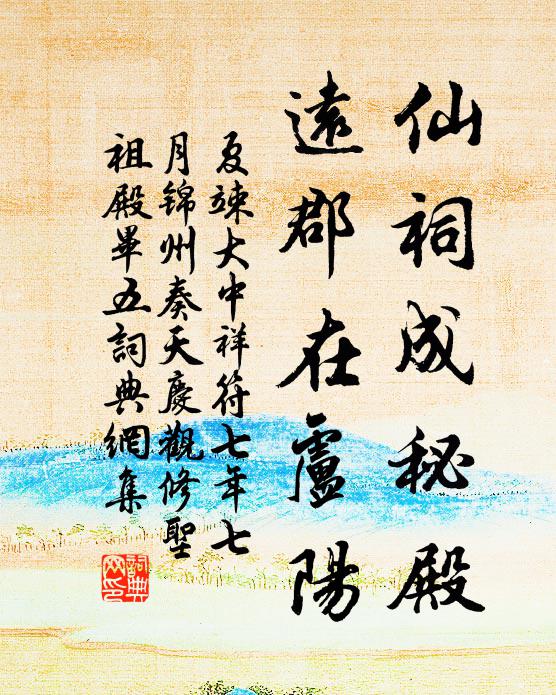 仙祠成秘殿
遠郡在盧陽
夏竦大中祥符七年七
月锦州奏天慶觀修聖
祖殿畢五詞典網集
詞典
网印